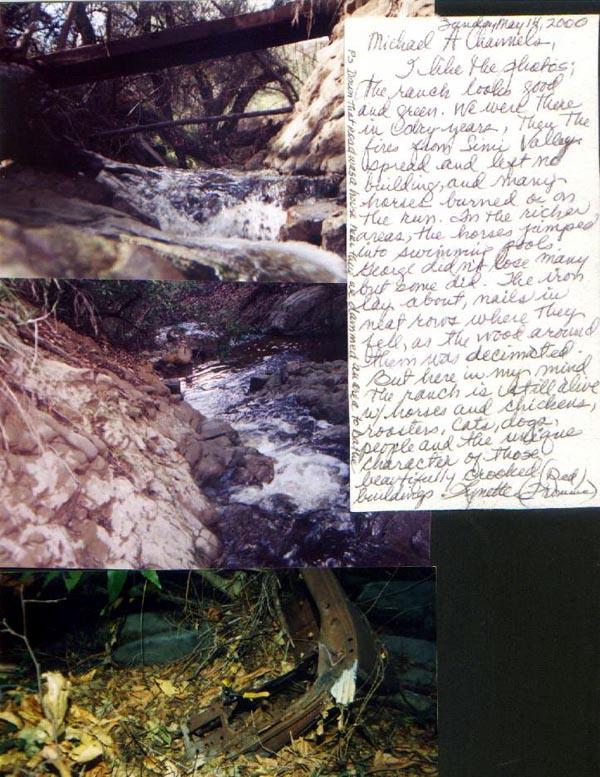 Sunday, May 14, 2000
Michael A Channels,
I like the photos;
the ranch looks good
and green. We were there
in dry years, Then The
fires from Simi Valley
spread and left no
building, and many
horses burned or on
the run. In the richer
areas, the horses jumped
into swimming pools.
George didn't lose many
but some did. The iron
lay about, nails in
neat rows where they
fell, as the wood around
them was decimated.
But here in my mind
the ranch is still alive
w/ horses and chickens,
roosters, cats, dogs,
people and the unique
character of those
beautifully crooked
buildings. Lynette (Red)
PS Down that
we dammed to bathe